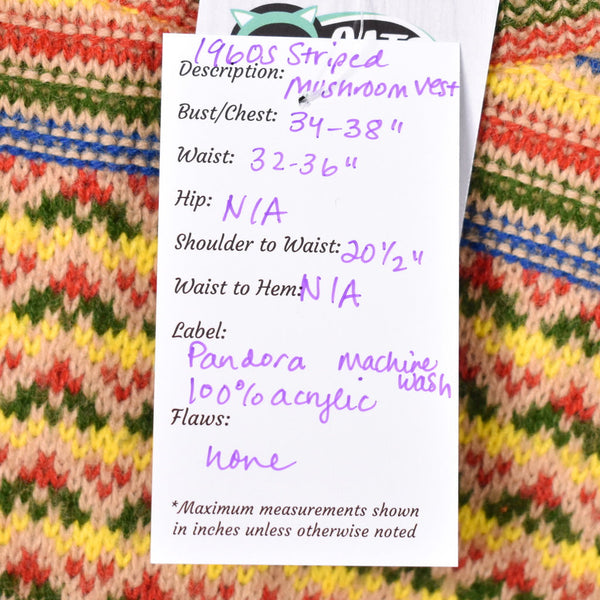 Description: 1960s Striped
Mushroom Vest
Bust/Chest: 34-38"
Waist: 32-36"
Hip: N/A
Shoulder to Waist: 20 1/2"
Waist to Hem: N/A
Label:
Pandora Machine
wash
100% acrylic
Flaws:
none
*Maximum measurements shown
in inches unless otherwise noted